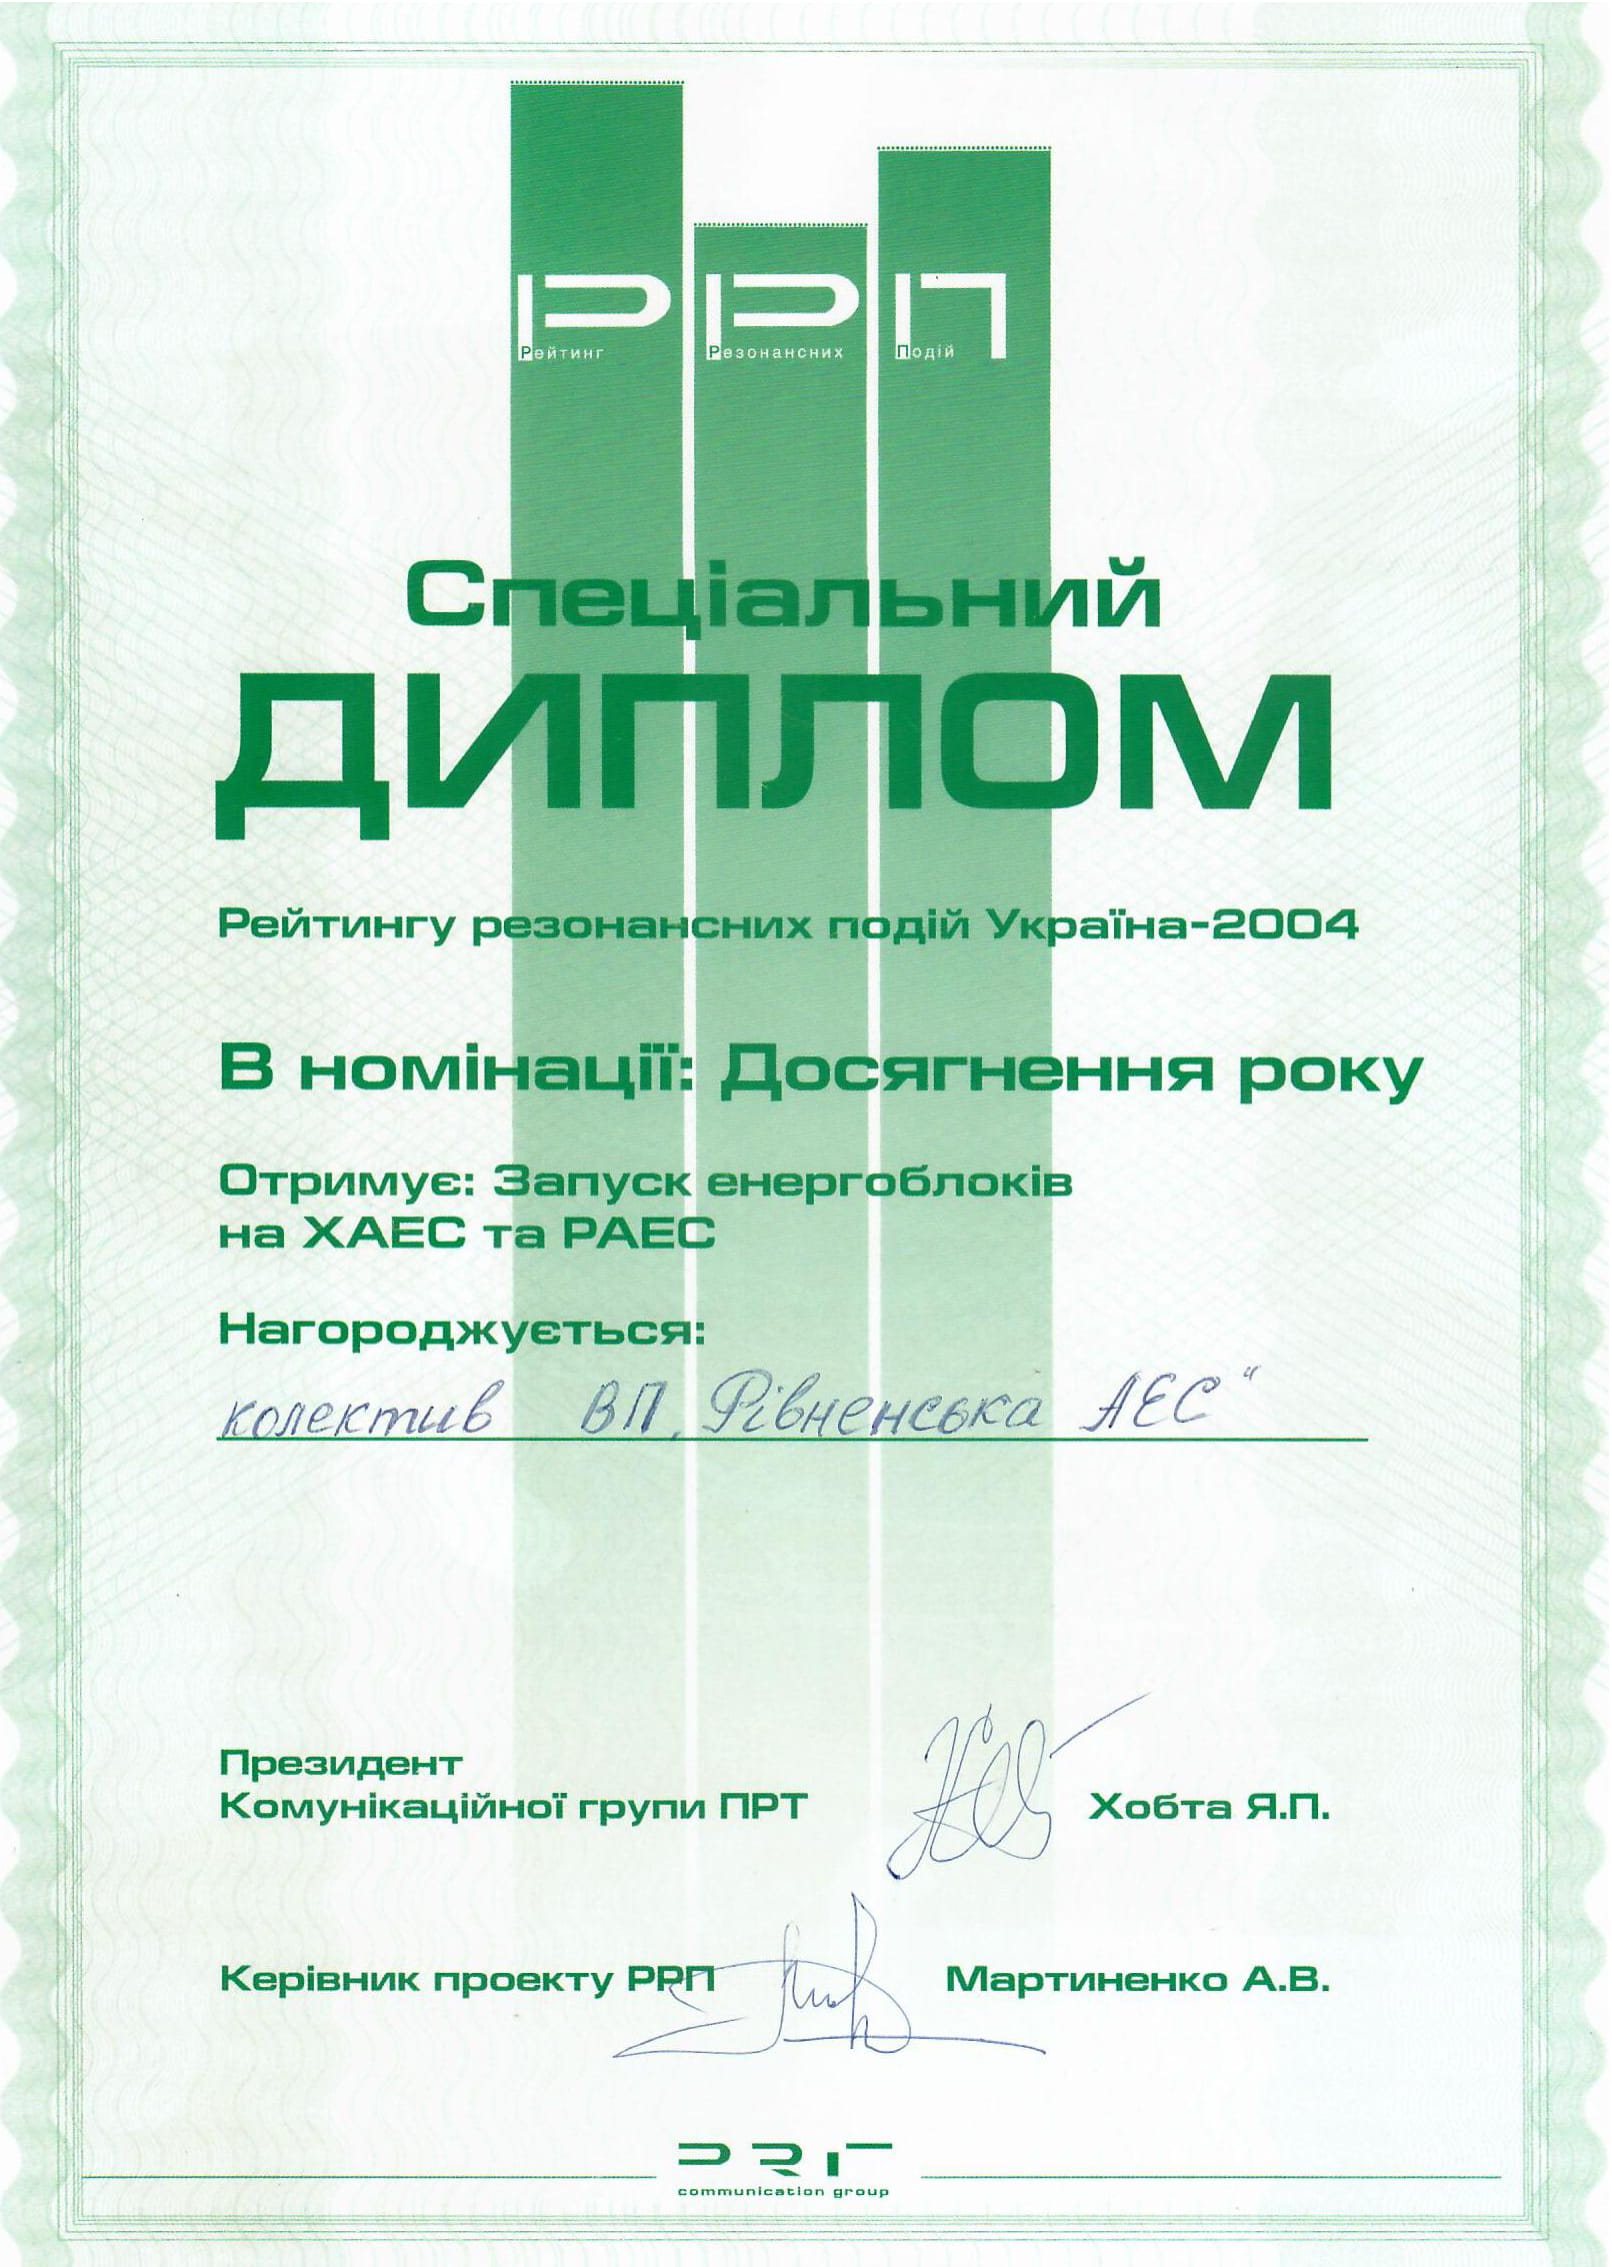 РРП
Рейтинг Резонансних Подій
Спеціальний
ДИПЛОМ
Рейтингу резонансних подій Україна-2004
В номінації: Досягнення року
Отримує: Запуск енергоблоків
на ХАЕС та РАЕС
Нагороджується:
колектив ВП „Рівненська АЕС“
Президент
Комунікаційної групи ПРТ Хобта Я.П.
Керівник проекту РРП Мартиненко А.В.
PRT
communication group